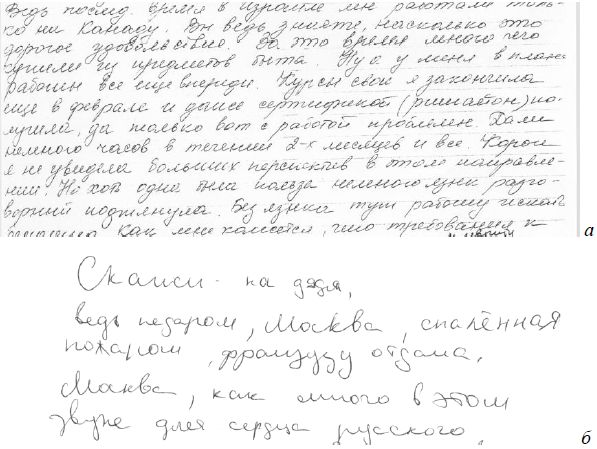 Ведь послед. время в Израиле мы работали толь-
ко на Канаду. Вы ведь знаете, насколько это
дорогое удовольствие. За это время много чего
купили из предметов быта. Ну а у меня в плане
работы все еще впереди. Курсы свои я закончила
еще в феврале и даже сертификат по-
лучила, да только вот с работой проблем. Дали
немного часов в течении 2-х месяцев и все. Короч
я не увидела больших перспектив в этом направле-
нии. Но хоть одна была польза немного язык разго-
ворный подтянула. Без языка тут работу искать
как мне кажется, что требования к
а
Скажи-ка дядя,
ведь недаром, Москва, спалённая
пожаром, французу отдана.
Моква, как много в этом
звуке для сердца русского.
б